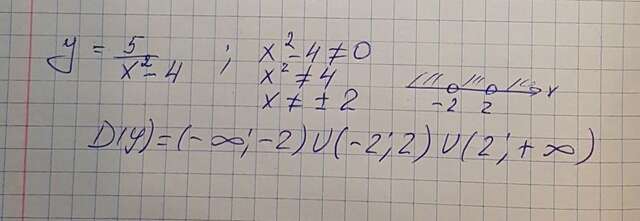 y = 5/(x² - 4) ; x² - 4 ≠ 0
x² ≠ 4
x ≠ ± 2
-2 2 x
D(y) = (-∞; -2) ∪ (-2; 2) ∪ (2; +∞)